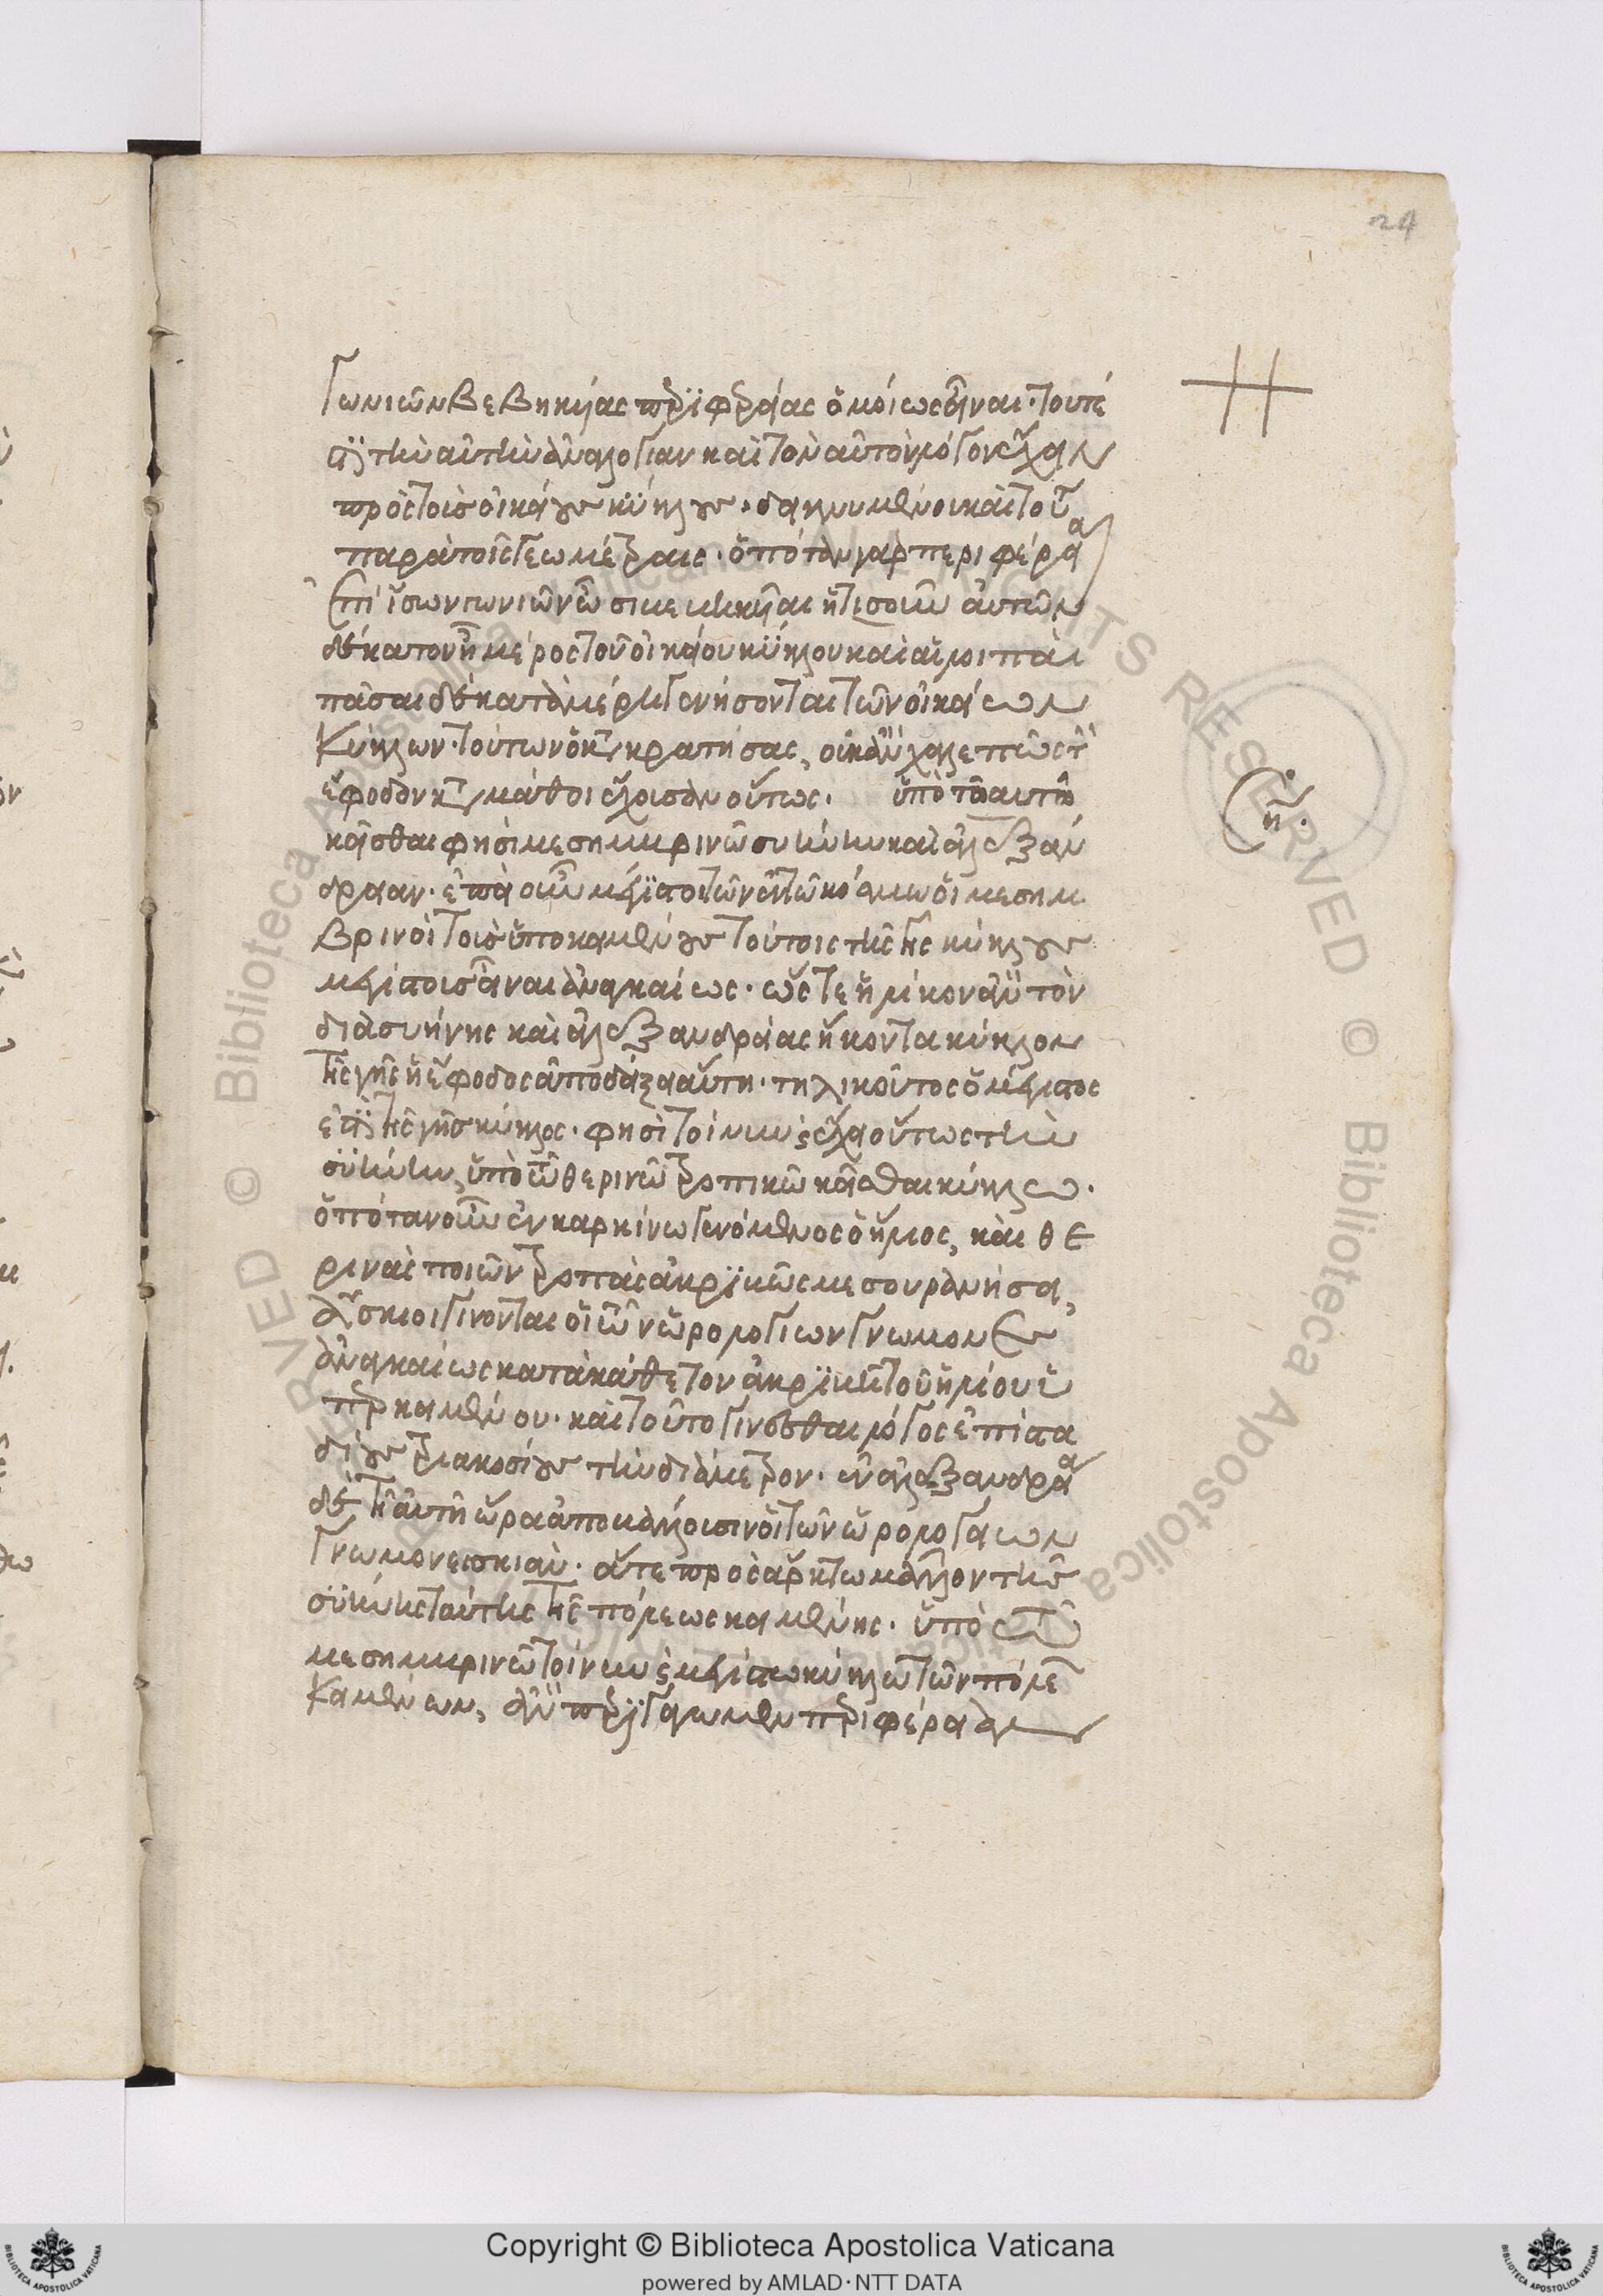 24
γωνιῶν βεβηκυίας περιφερείας ὁμοίως εἶναι· τουτέ
στι τὴν αὐτὴν ἀναλογίαν καὶ τὸν αὐτὸν λόγον ἔχειν
πρὸς τοῖς οἰκείοις κύκλοις· δεικνυμένοι καὶ τοῦ
παρὰ τοῖς γεωμέτραις· ὁπόταν γὰρ περιφέρειαι
ἐπὶ ἴσων γωνιῶν ὦσι βεβηκυῖαι ἥτις οὖν αὐτῶν
δέκατον ἦ μέρος τοῦ οἰκείου κύκλου καὶ αἱ λοιπαὶ
πᾶσαι δέκατα μέρη γενήσονται τῶν οἰκείων
κύκλων· τούτων ὁ κατακρατήσας, οὐκ ἂν χαλεπῶς τὴν
ἔφοδον καταμάθοι ἔχουσαν οὕτως· ὑπὸ τῶ αυτῶ
κεῖσθαι φησὶ μεσημβρινῶ συήνην καὶ ἀλεξάν
δρειαν· ἐπεὶ οὖν μέγιστοι τῶν ἐν τῶ κόσμω οἱ μεσημ
βρινοὶ τοῖς ὑποκειμένοις τούτοις τῆς γῆς κύκλοις
μεγίστοις εἶναι ἀναγκαίως· ὥστε ἡλίκον ἂν τὸν
διὰ συήνης καὶ ἀλεξανδρείας ἥκοντα κύκλον
τῆς γῆς ἡ ἔφοδος ἀποδείξει αὕτη· τηλικοῦτος ὁ μέγιστος
ἐστι τῆς γῆς κύκλος· φησὶ τοίνυν καὶ ἔχει οὕτως τὴν
συήνην, ὑπὸ τῶ θερινῶ τροπικῶ κεῖσθαι κύκλω·
ὁπόταν οὖν ἐν καρκίνω γενόμενος ὁ ἥλιος, καὶ θε
ρινὰς ποιῶν τροπὰς ἀκριβῶς μεσουρανήσει,
ἄσκιοι γίνονται οἱ τῶν ὡρολογίων γνώμονες
ἀναγκαίως κατὰ κάθετον ἀκριβῆ τοῦ ἡλίου ὑ
περκειμένου· καὶ τοῦτο γίνεσθαι λόγος ἐπὶ στα
δίοις τριακοσίοις τὴν διάμετρον· ἐν ἀλεξανδρεία
δὲ τῆ αὐτῆ ὥρα ἀποβάλλουσιν οἱ τῶν ὡρολογείων
γνώμονες σκιάν· ἅτε πρὸς ἄρκτω μᾶλλον τῆς
συήνης ταύτης τῆς πόλεως κειμένης· ὑπὸ τῶ
μεσημβρινῶ τοίνυν καὶ μεγίστω κύκλω τῶν πόλεων
κειμένων, ἂν περιαγάγωμεν περιφέρειαν
η·